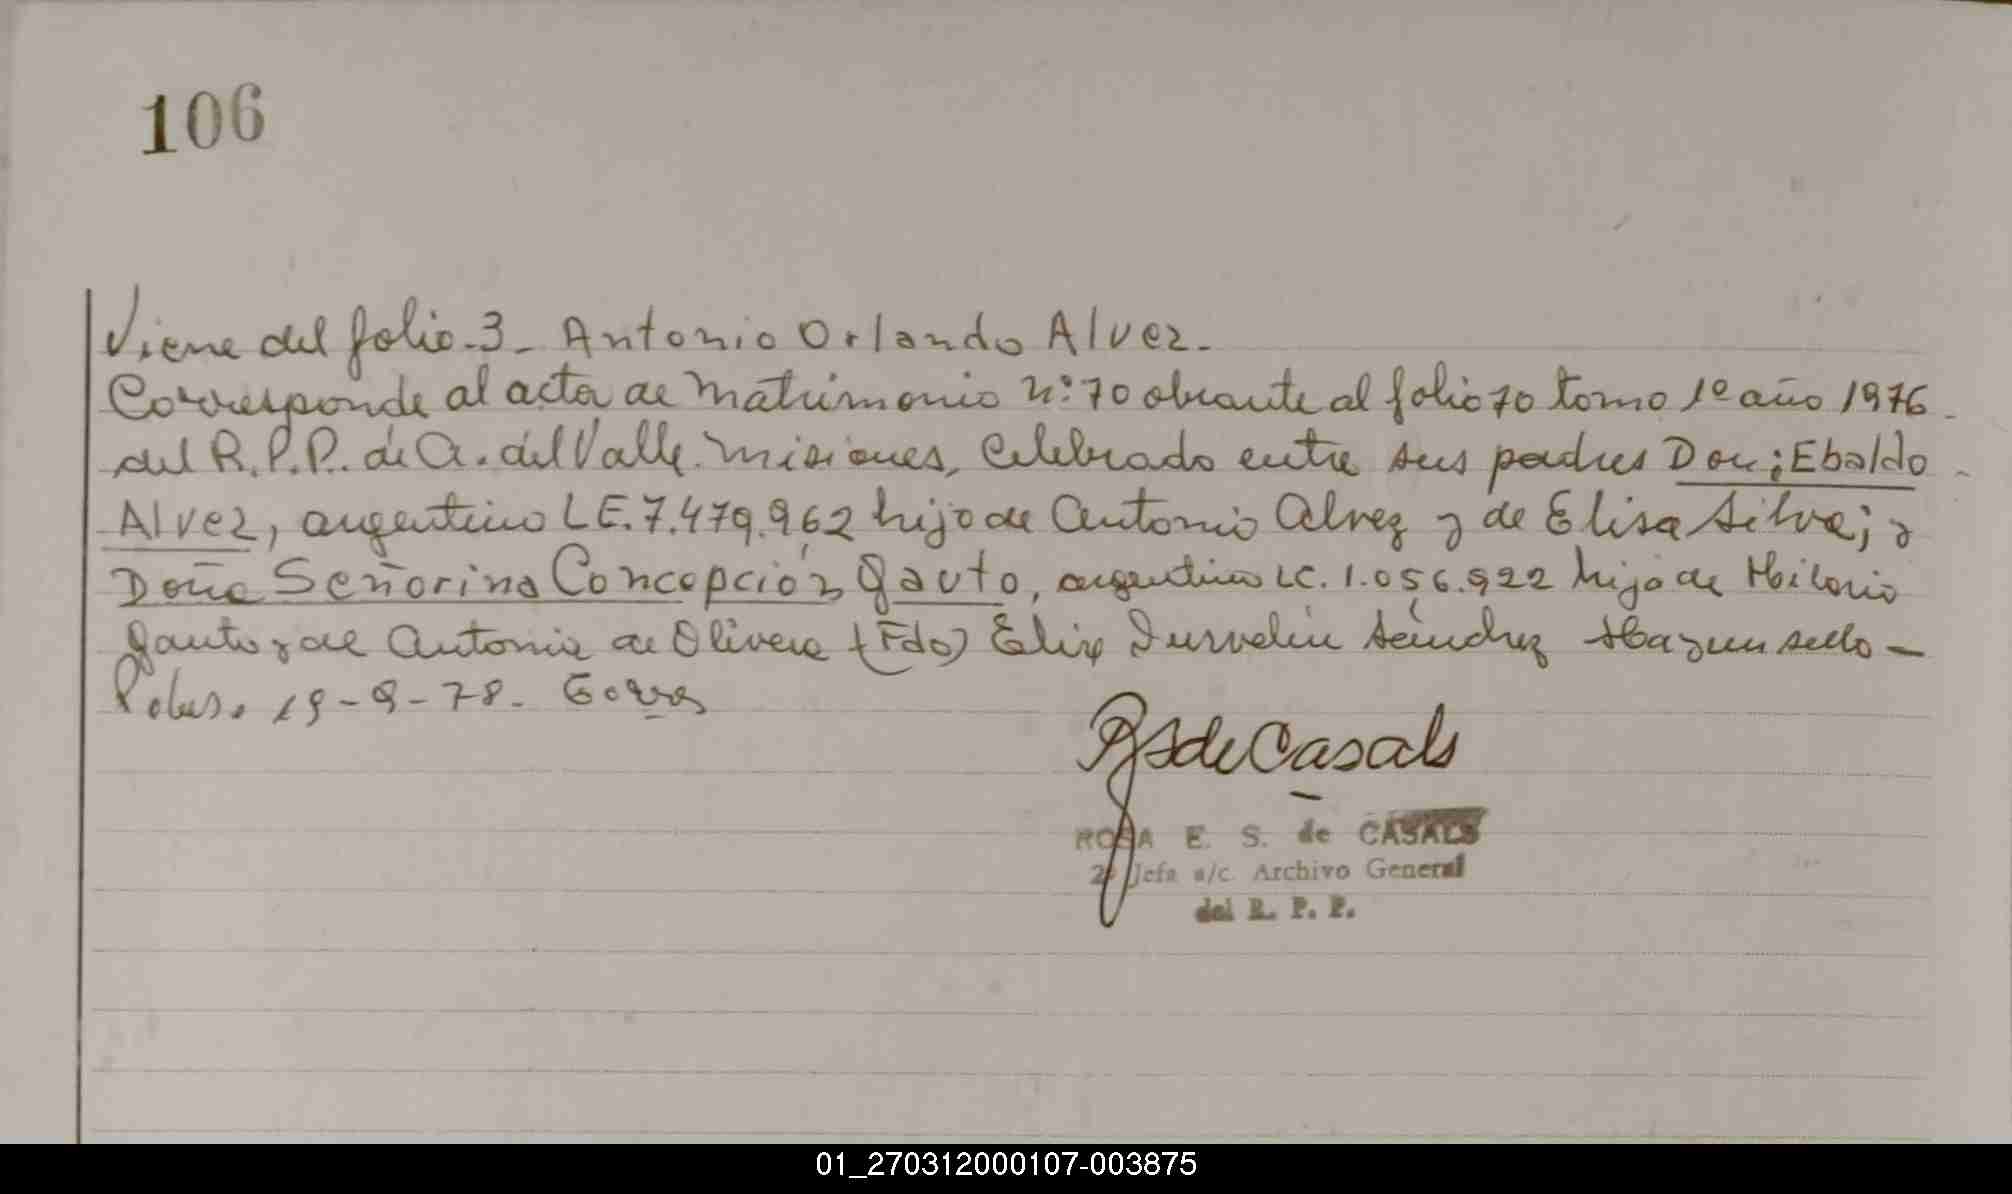 106
Viene del folio - 3 - Antonio Orlando Alvez -
Corresponde al acta de Matrimonio nº: 70 obrante al folio 70 tomo 1º año 1976 -
del R.P.P. de A. del Valle. Misiones, Celebrado entre sus padres Don: Ebaldo
Alvez, argentino L.E. 7.479.962 hijo de Antonio Alvez y de Elisa Silva; y
Doña Señorina Concepción Gauto, argentina LC. 1.056.922 hija de Hilario
Gauto y de Antonia de Olivera (Fdo) Elix Sánchez Hay un sello -
19-9-78.
RS de Casals
ROSA E. S. de CASALS
2º Jefa a/c. Archivo General
del R. P. P.
01_270312000107-003875